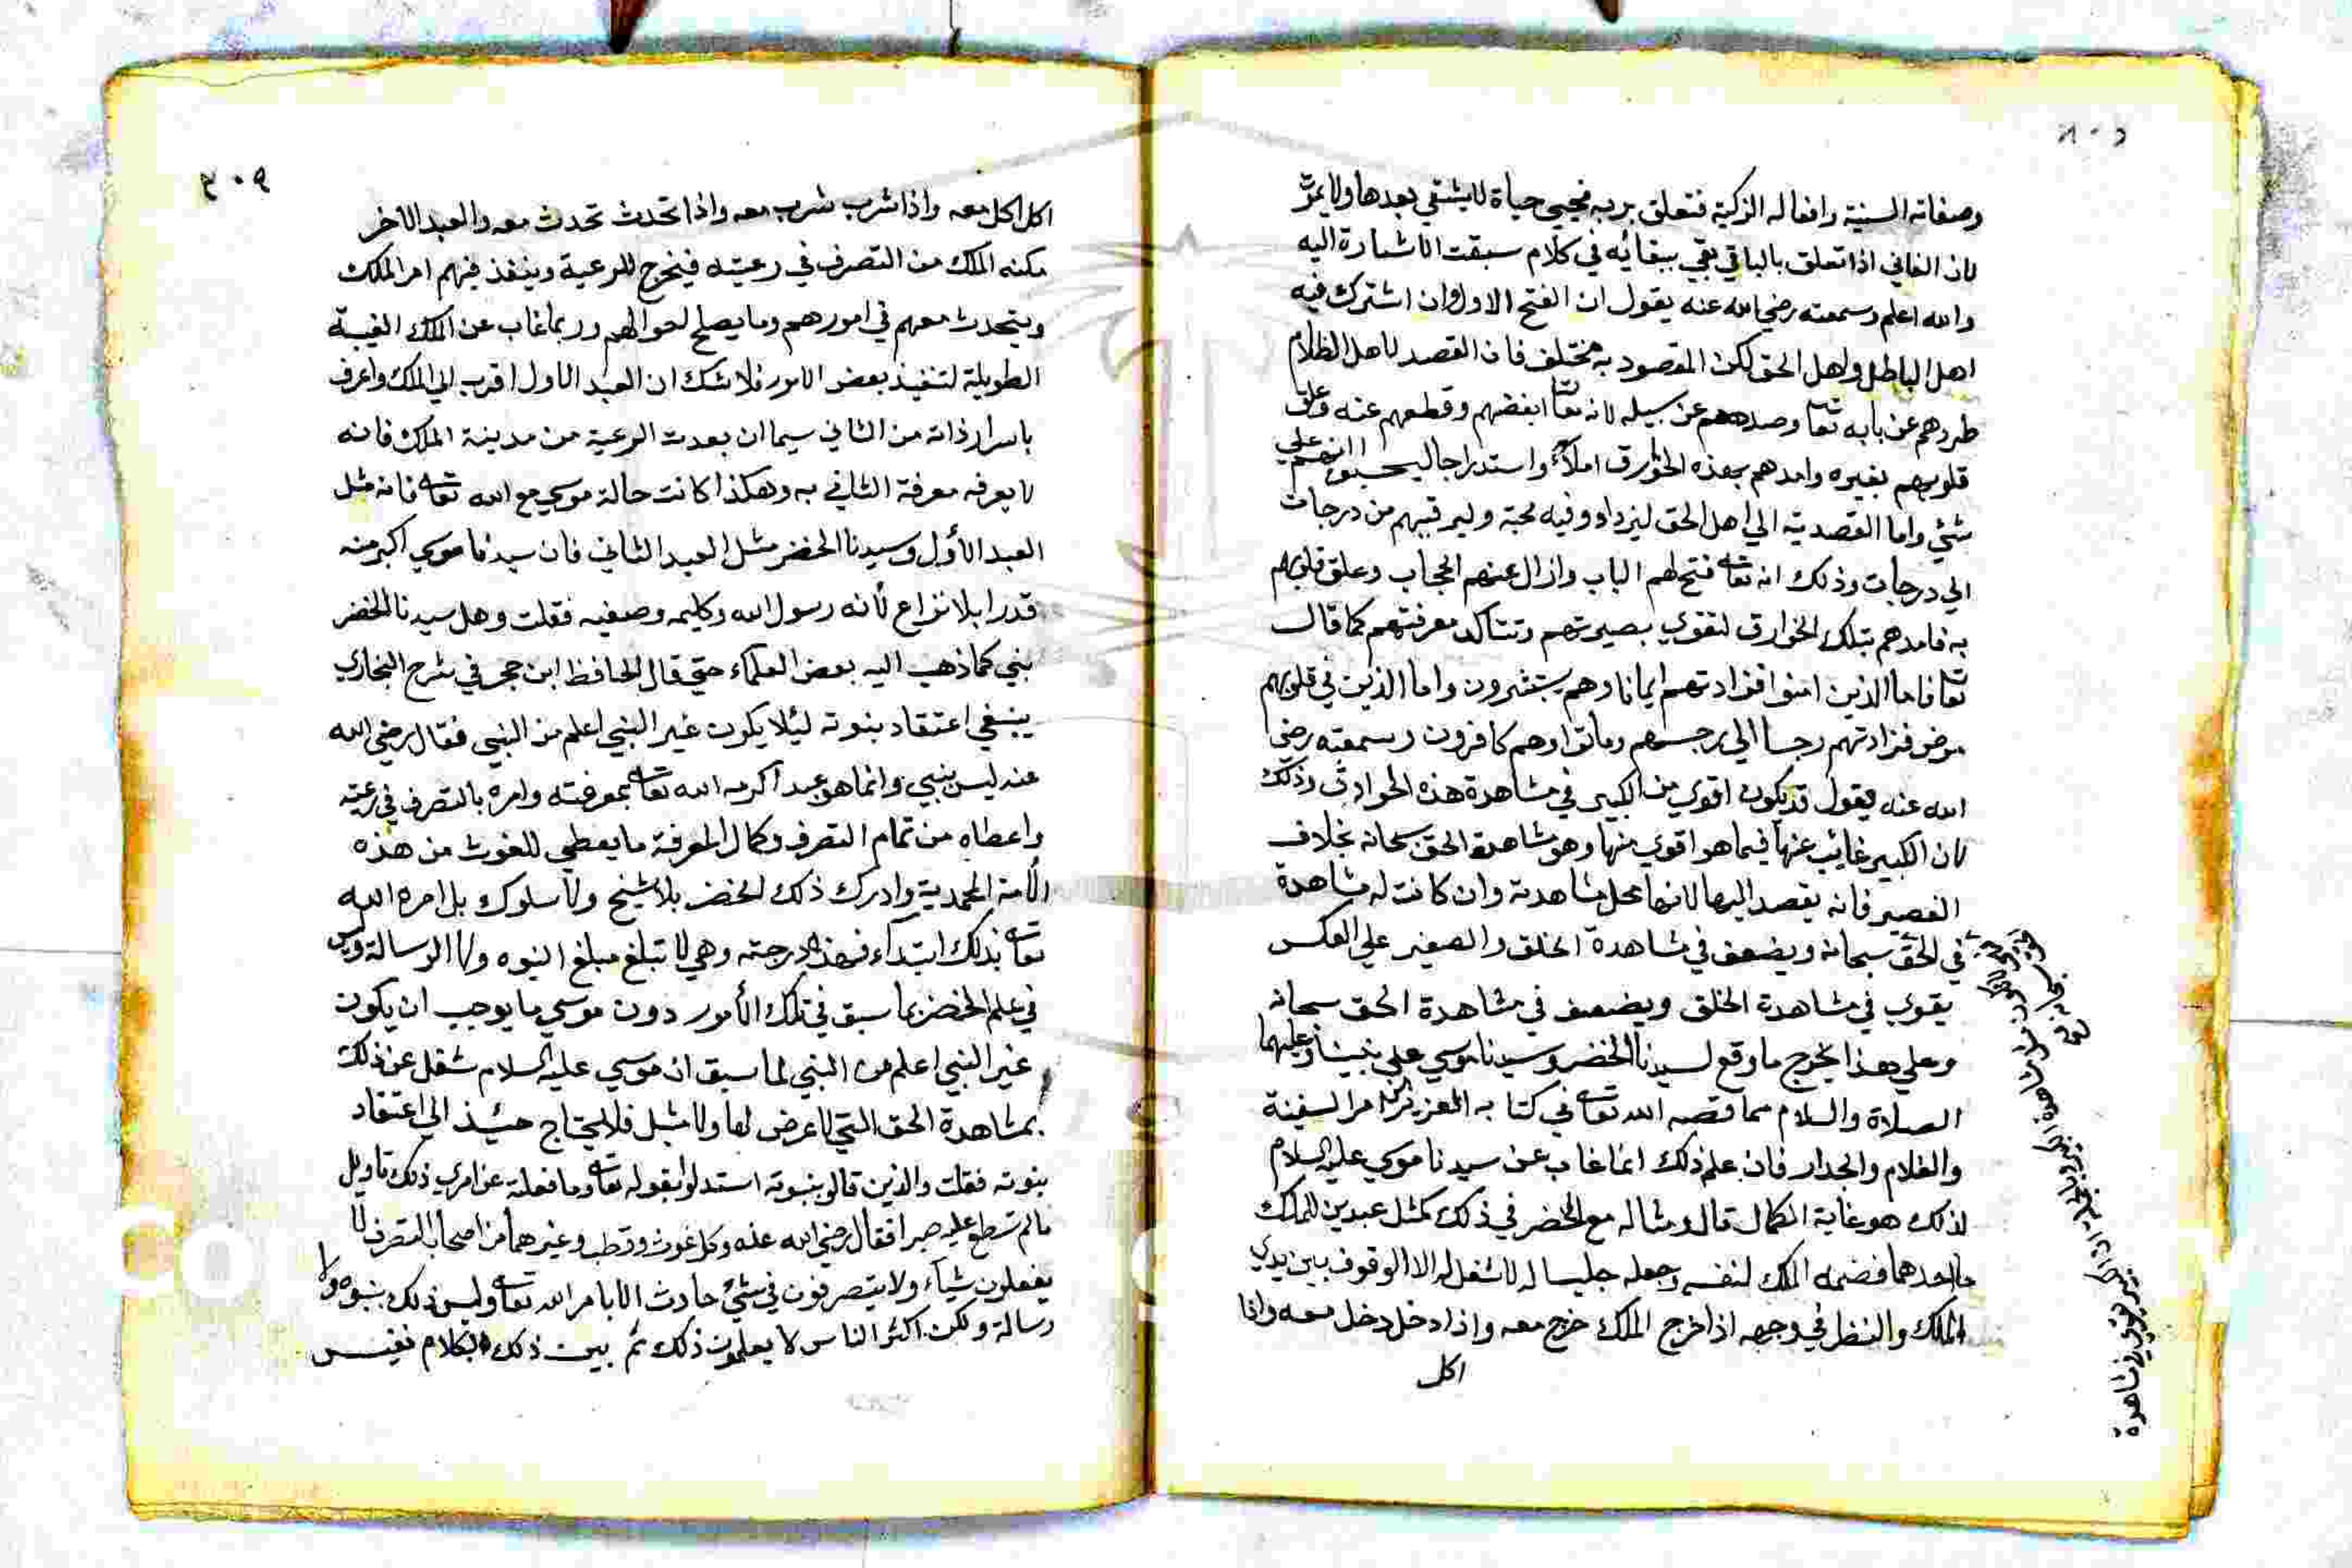 وصفاته السنية وافعاله الزكية فتعلق بربه فيحيي حياة لا يشقي بعدها ولا يموت
لان الفاني اذا تعلق بالباقي بقي ببقائه في كلام سبقت الاشارة اليه
والله اعلم وسمعته رضي الله عنه يقول ان الفتح الاول وان اشترك فيه
اهل الباطل واهل الحق لكن المقصود به مختلف فان القصد لاهل الظلام
طردهم عن بابه تعا وصدهم عن سبيله لانه تعا ابغضهم وقطعهم عنه وعلق
قلوبهم بغيره وامدهم بهذه الخوارق املاء واستدراجا ليحسبوا انهم علي
شئي واما القصد به الي اهل الحق ليزدادو فيه محبة وليرقيهم من درجات
الي درجات وذلك انه تعا فتح لهم الباب وازال عنهم الحجاب وعلق قلوبهم
به فامدهم بتلك الخوارق لتقوي بصيرتهم وتتأكد معرفتهم كما قال
تعا فاما الذين امنوا فزادتهم ايمانا وهم يستبشرون واما الذين في قلوبهم
مرض فزادتهم رجسا الي رجسهم وماتوا وهم كافرون وسمعته رضي
الله عنه يقول قد يكون اقوي من الكبير في مشاهدة هذه الحوادث وذلك
لان الكبير غائب عنها فيما هو اقوي منها وهو مشاهدة الحق سبحانه بخلاف
الصغير فانه يقصد اليها لانها محل مشاهدته وان كانت له مشاهدة
في الحق سبحانه ويضعف في مشاهدة الخلق والصغير علي العكس
يقوي في مشاهدة الخلق ويضعف في مشاهدة الحق سبحانه
وعلي هذا يخرج ما وقع لسيدنا الخضر وسيدنا موسي علي نبينا وعليهما
الصلاة والسلام مما قصه الله تعا في كتابه العزيز من امر السفينة
والغلام والجدار فان علم ذلك انما غاب عن سيدنا موسي عليه السلام
لذلك هو غاية الكمال قال ومثاله مع الخضر في ذلك كمثل عبدين للملك
ما احدهما فضمه الملك لنفسه وجعله جليسا له لا شغل له الا الوقوف بين يدي
الملك والنظر في وجهه اذا خرج الملك خرج معه واذا دخل دخل معه واذا
اكل
بالجملة اذا الكبير يقوي في مشاهدة
اكل اكل معه واذا شرب شرب معه واذا تحدث تحدث معه والعبد الاخر
مكنه الملك من التصرف في رعيته فيخرج للرعية وينفذ فيهم امر الملك
ويتحدث معهم في امورهم وما يصلح لحوالهم وربما غاب عن الملك الغيبة
الطويلة لتنفيذ بعض الامور فلا شك ان العبد الاول اقرب الي الملك واعرف
باسرار ذاته من الثاني سيما ان بعدت الرعية من مدينة الملك فانه
لا يعرفه معرفة الثاني به وهكذا كانت حالة موسي مع الله تعا فانه مثل
العبد الأول وسيدنا الخضر مثل العبد الثاني فان سيدنا موسي اكبر منه
قدرا بلا نزاع لأنه رسول الله وكليمه وصفيه فقلت وهل سيدنا الخضر
نبي كما ذهب اليه بعض العلماء حتي قال الحافظ ابن حجر في شرح البخاري
ينبغي اعتقاد بنوته ليئلا يكون غير النبي اعلم من النبي فقال رضي الله
عنه ليس بنبي وانما هو عبد اكرمه الله تعا بمعرفته وامره بالتصرف في رعيته
واعطاه من تمام التصرف وكمال المعرفة ما يعطي للغوث من هذه
الأمة المحمدية وادرك ذلك الخضر بلا شيخ ولا سلوك بل امره الله
تعا بذلك ابتداء فهذه درجته وهي لا تبلغ مبلغ النبوه ولا الرسالة وليس
في علم الخضر بما سبق في تلك الأمور دون موسي ما يوجب ان يكون
غير النبي اعلم من النبي لما سبق ان موسي عليه السلام شغل عن ذلك
بمشاهدة الحق التي لا عرض لها ولا مثيل فلا يحتاج حينئذ الي اعتقاد
بنوته فقلت والذين قالو بنبوته استدلوا بقوله تعا وما فعلته عن امري ذلك تاويل
ما لم تسطع عليه صبرا فقال رضي الله عنه وكل غوث وقطب وغيرهما من اصحاب التصرف لا
يفعلون شياء ولا يتصرفون في شئ حادث الا بامر الله تعا وليس ذلك بنبوه ولا
رسالة ولكن اكثر الناس لا يعلمون ذلك ثم بين ذلك بكلام نفيس